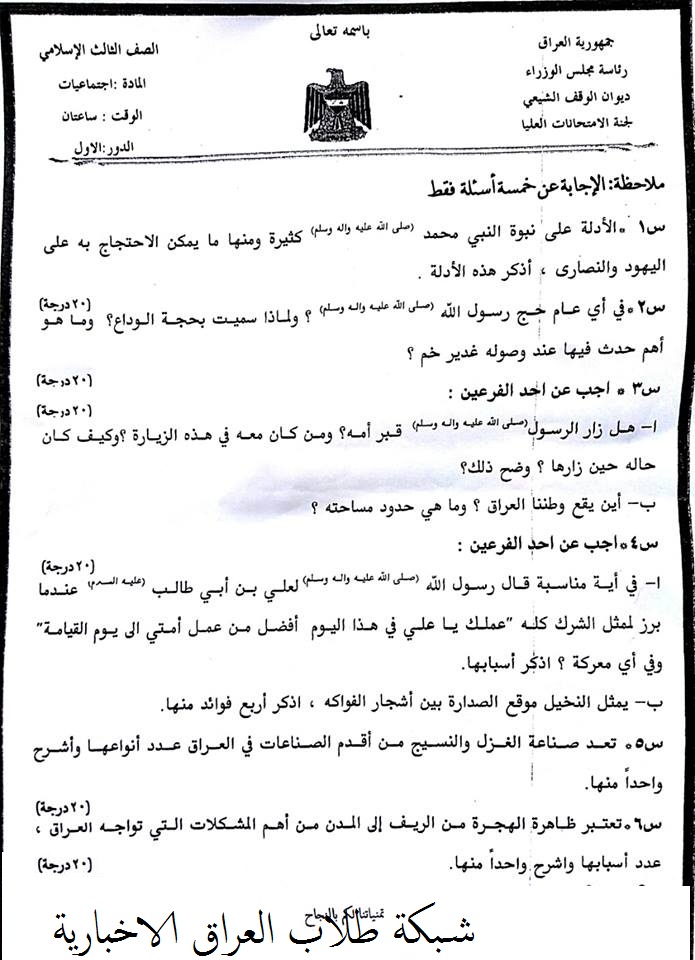 باسمه تعالى
جمهورية العراق
رئاسة مجلس الوزراء
ديوان الوقف الشيعي
لجنة الامتحانات العليا
الصف الثالث الإسلامي
المادة :اجتماعيات
الوقت : ساعتان
الدور:الاول
ملاحظة: الإجابة عن خمسة أسئلة فقط
س١* الأدلة على نبوة النبي محمد (صلى الله عليه واله وسلم) كثيرة ومنها ما يمكن الاحتجاج به على
اليهود والنصارى ، أذكر هذه الأدلة .
(٢٠درجة)
س٢*في أي عام حج رسول الله (صلى الله عليه واله وسلم) ؟ ولماذا سميت بحجة الوداع؟ وما هو
أهم حدث فيها عند وصوله غدير خم ؟
(٢٠درجة)
س٣ * اجب عن احد الفرعين :
(٢٠درجة)
ا– هل زار الرسول(صلى الله عليه واله وسلم) قبر أمه؟ ومن كان معه في هذه الزيارة ؟وكيف كان
حاله حين زارها ؟ وضح ذلك؟
ب– أين يقع وطننا العراق ؟ وما هي حدود مساحته ؟
س٤*اجب عن احد الفرعين :
(٢٠درجة)
ا– في أية مناسبة قال رسول الله (صلى الله عليه واله وسلم)لعلي بن أبي طالب (عليه السلام) عندما
برز لمثل الشرك كله "عملك يا علي في هذا اليوم أفضل من عمل أمتي الى يوم القيامة"
وفي أي معركة ؟ اذكر أسبابها.
ب– يمثل النخيل موقع الصدارة بين أشجار الفواكه ، اذكر أربع فوائد منها.
س٥* تعد صناعة الغزل والنسيج من أقدم الصناعات في العراق عدد أنواعها وأشرح
واحداً منها.
(٢٠درجة)
س٦*تعتبر ظاهرة الهجرة من الريف إلى المدن من أهم المشكلات التي تواجه العراق ،
عدد أسبابها واشرح واحداً منها.
(٢٠درجة)
تمنياتنا لكم بالنجاح
شبكة طلاب العراق الاخبارية